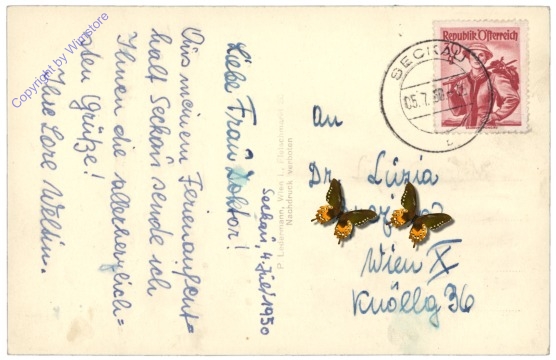 Seckau, 4. Juli 1950
Liebe Frau Doktor!
Aus meinem Ferienaufent=
halt Seckau sende ich
Ihnen die allerherzlich=
sten Grüße!
Ihre Lore Welin.
Copyright by Wignstore
P. Ledermann, Wien I., Fleischmarkt
Nachdruck verboten
Republik Österreich
SECKAU
05.7.50
An
Dr. Luzia
Wien X
Knöllg 36